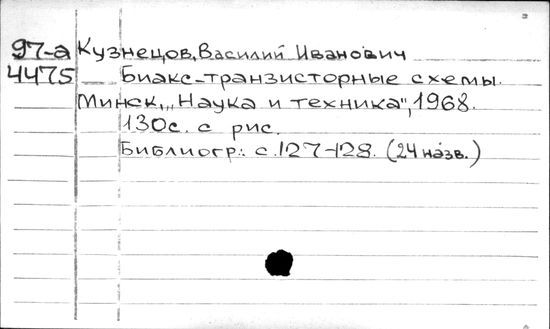 97-а Кузнецов, Василий Иванович
4475 Биакс-транзисторные схемы.
Минск, „Наука и техника", 1968.
130с. с рис.
Библиогр.: с.127-128. (24 назв.)